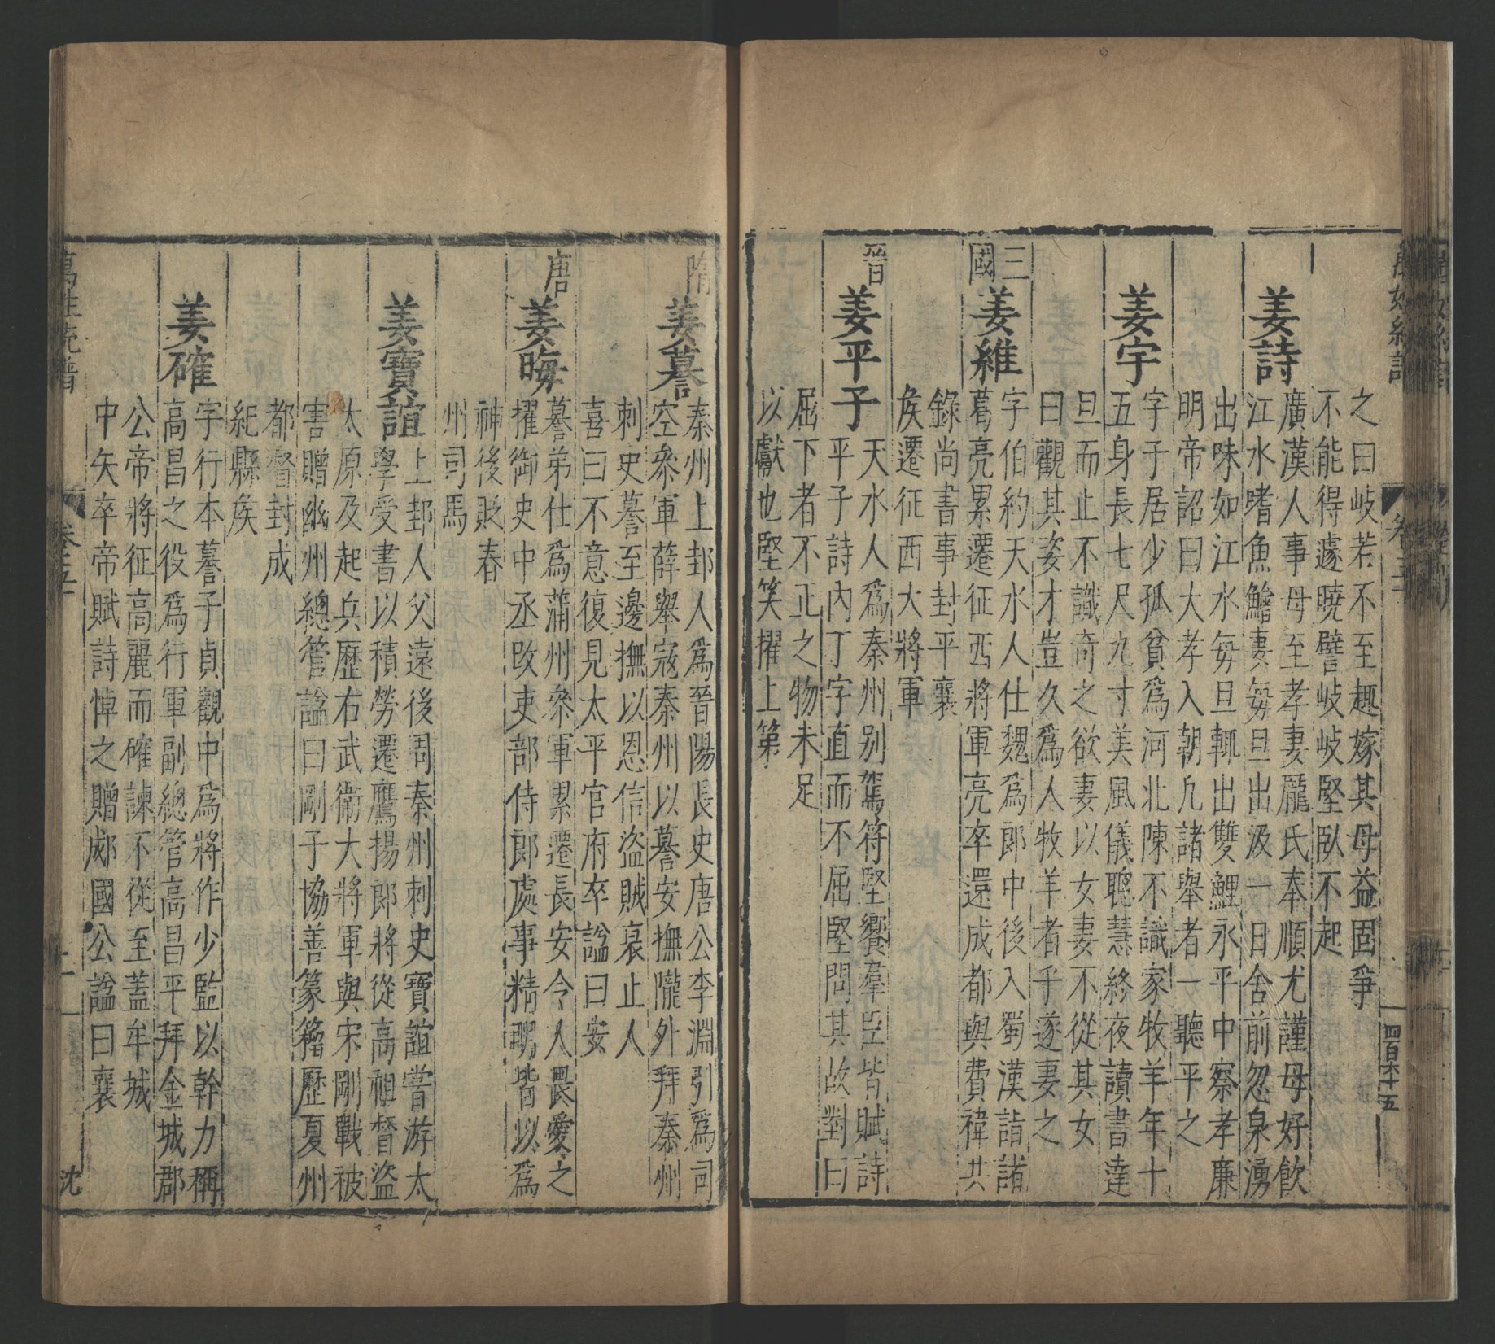 之曰岐若不至趣嫁其母益固爭
不能得遽曉譬岐岐堅臥不起
姜詩
廣漢人事母至孝妻龐氏奉順尤謹母好飲
江水嗜魚鱠妻每旦出汲一日舍前忽泉湧
出味如江水每旦輒出雙鯉永平中察孝廉
明帝詔曰大孝入朝凡諸舉者一聽平之
姜宇
字子居少孤貧爲河北陳不識家牧羊年十
五身長七尺九寸美風儀聰慧終夜讀書達
旦而止不識奇之欲妻以女妻不從其女
曰觀其姿才豈久爲人牧羊者乎遂妻之
三國
姜維
字伯約天水人仕魏爲郎中後入蜀漢諸諸
葛亮累遷征西將軍亮卒還成都與費禕共
錄尚書事封平襄
侯遷征西大將軍
晉
姜平子
天水人爲秦州别駕符堅饗羣臣皆賦詩
平子詩內丁字直而不屈堅問其故對曰
屈下者不正之物未足
以獻也堅笑擢上第
卷之五
四百六十五
隋
姜謩
秦州上邽人爲晉陽長史唐公李淵引爲司
空叅軍薛舉寇秦州以謩安撫隴外拜秦州
刺史謩至邊撫以恩信盜賊衰止人
喜曰不意復見太平官府卒諡曰安
唐
姜晦
謩弟仕爲蒲州叅軍累遷長安令人畏愛之
擢御史中丞改吏部侍郎處事精明皆以爲
神後貶春
州司馬
姜寶誼
上邽人父遠後周秦州刺史寶誼嘗游太
學受書以積勞遷鷹揚郎將從高祖督盜
太原及起兵歷右武衞大將軍與宋剛戰被
害贈幽州總管諡曰剛子協善篆籀歷夏州
都督封成
紀縣侯
姜確
字行本謩子貞觀中爲將作少監以幹力稱
高昌之役爲行軍副總管高昌平拜金城郡
公帝將征高麗而確諫不從至蓋牟城
中矢卒帝賦詩悼之贈郕國公諡曰襄
萬姓統譜
卷之五
十一
沈